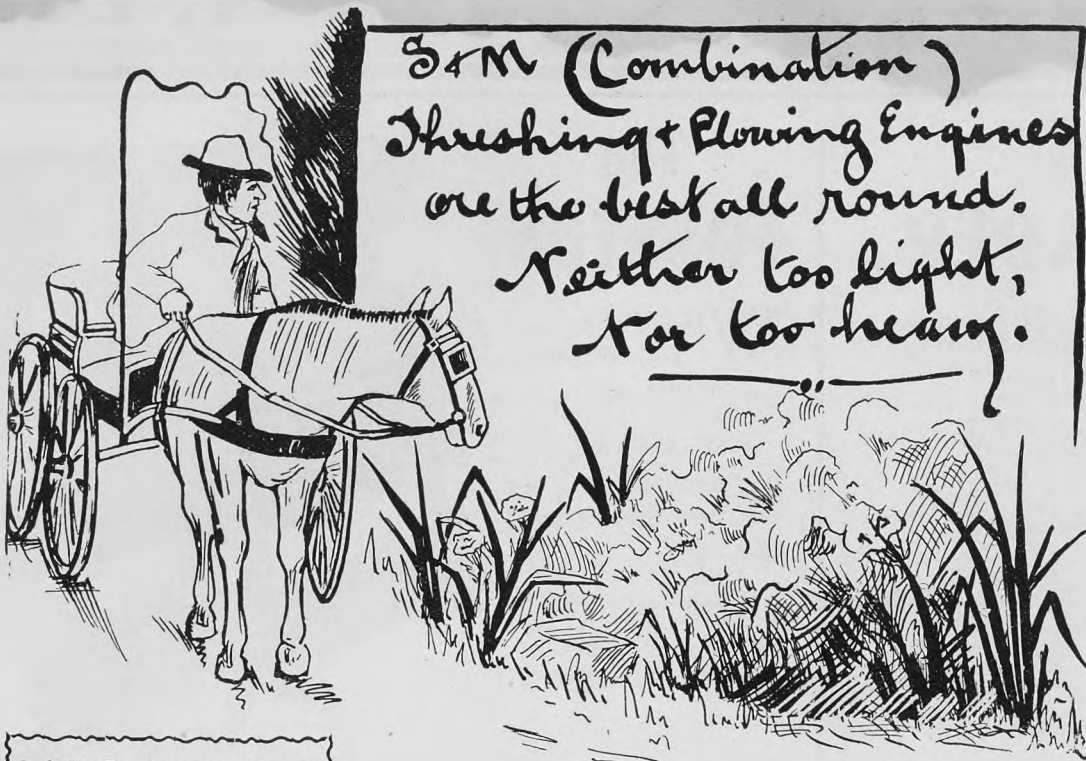 S & M (Combination)
Threshing & Plowing Engines
are the best all round.
Neither too light,
Nor too heavy.